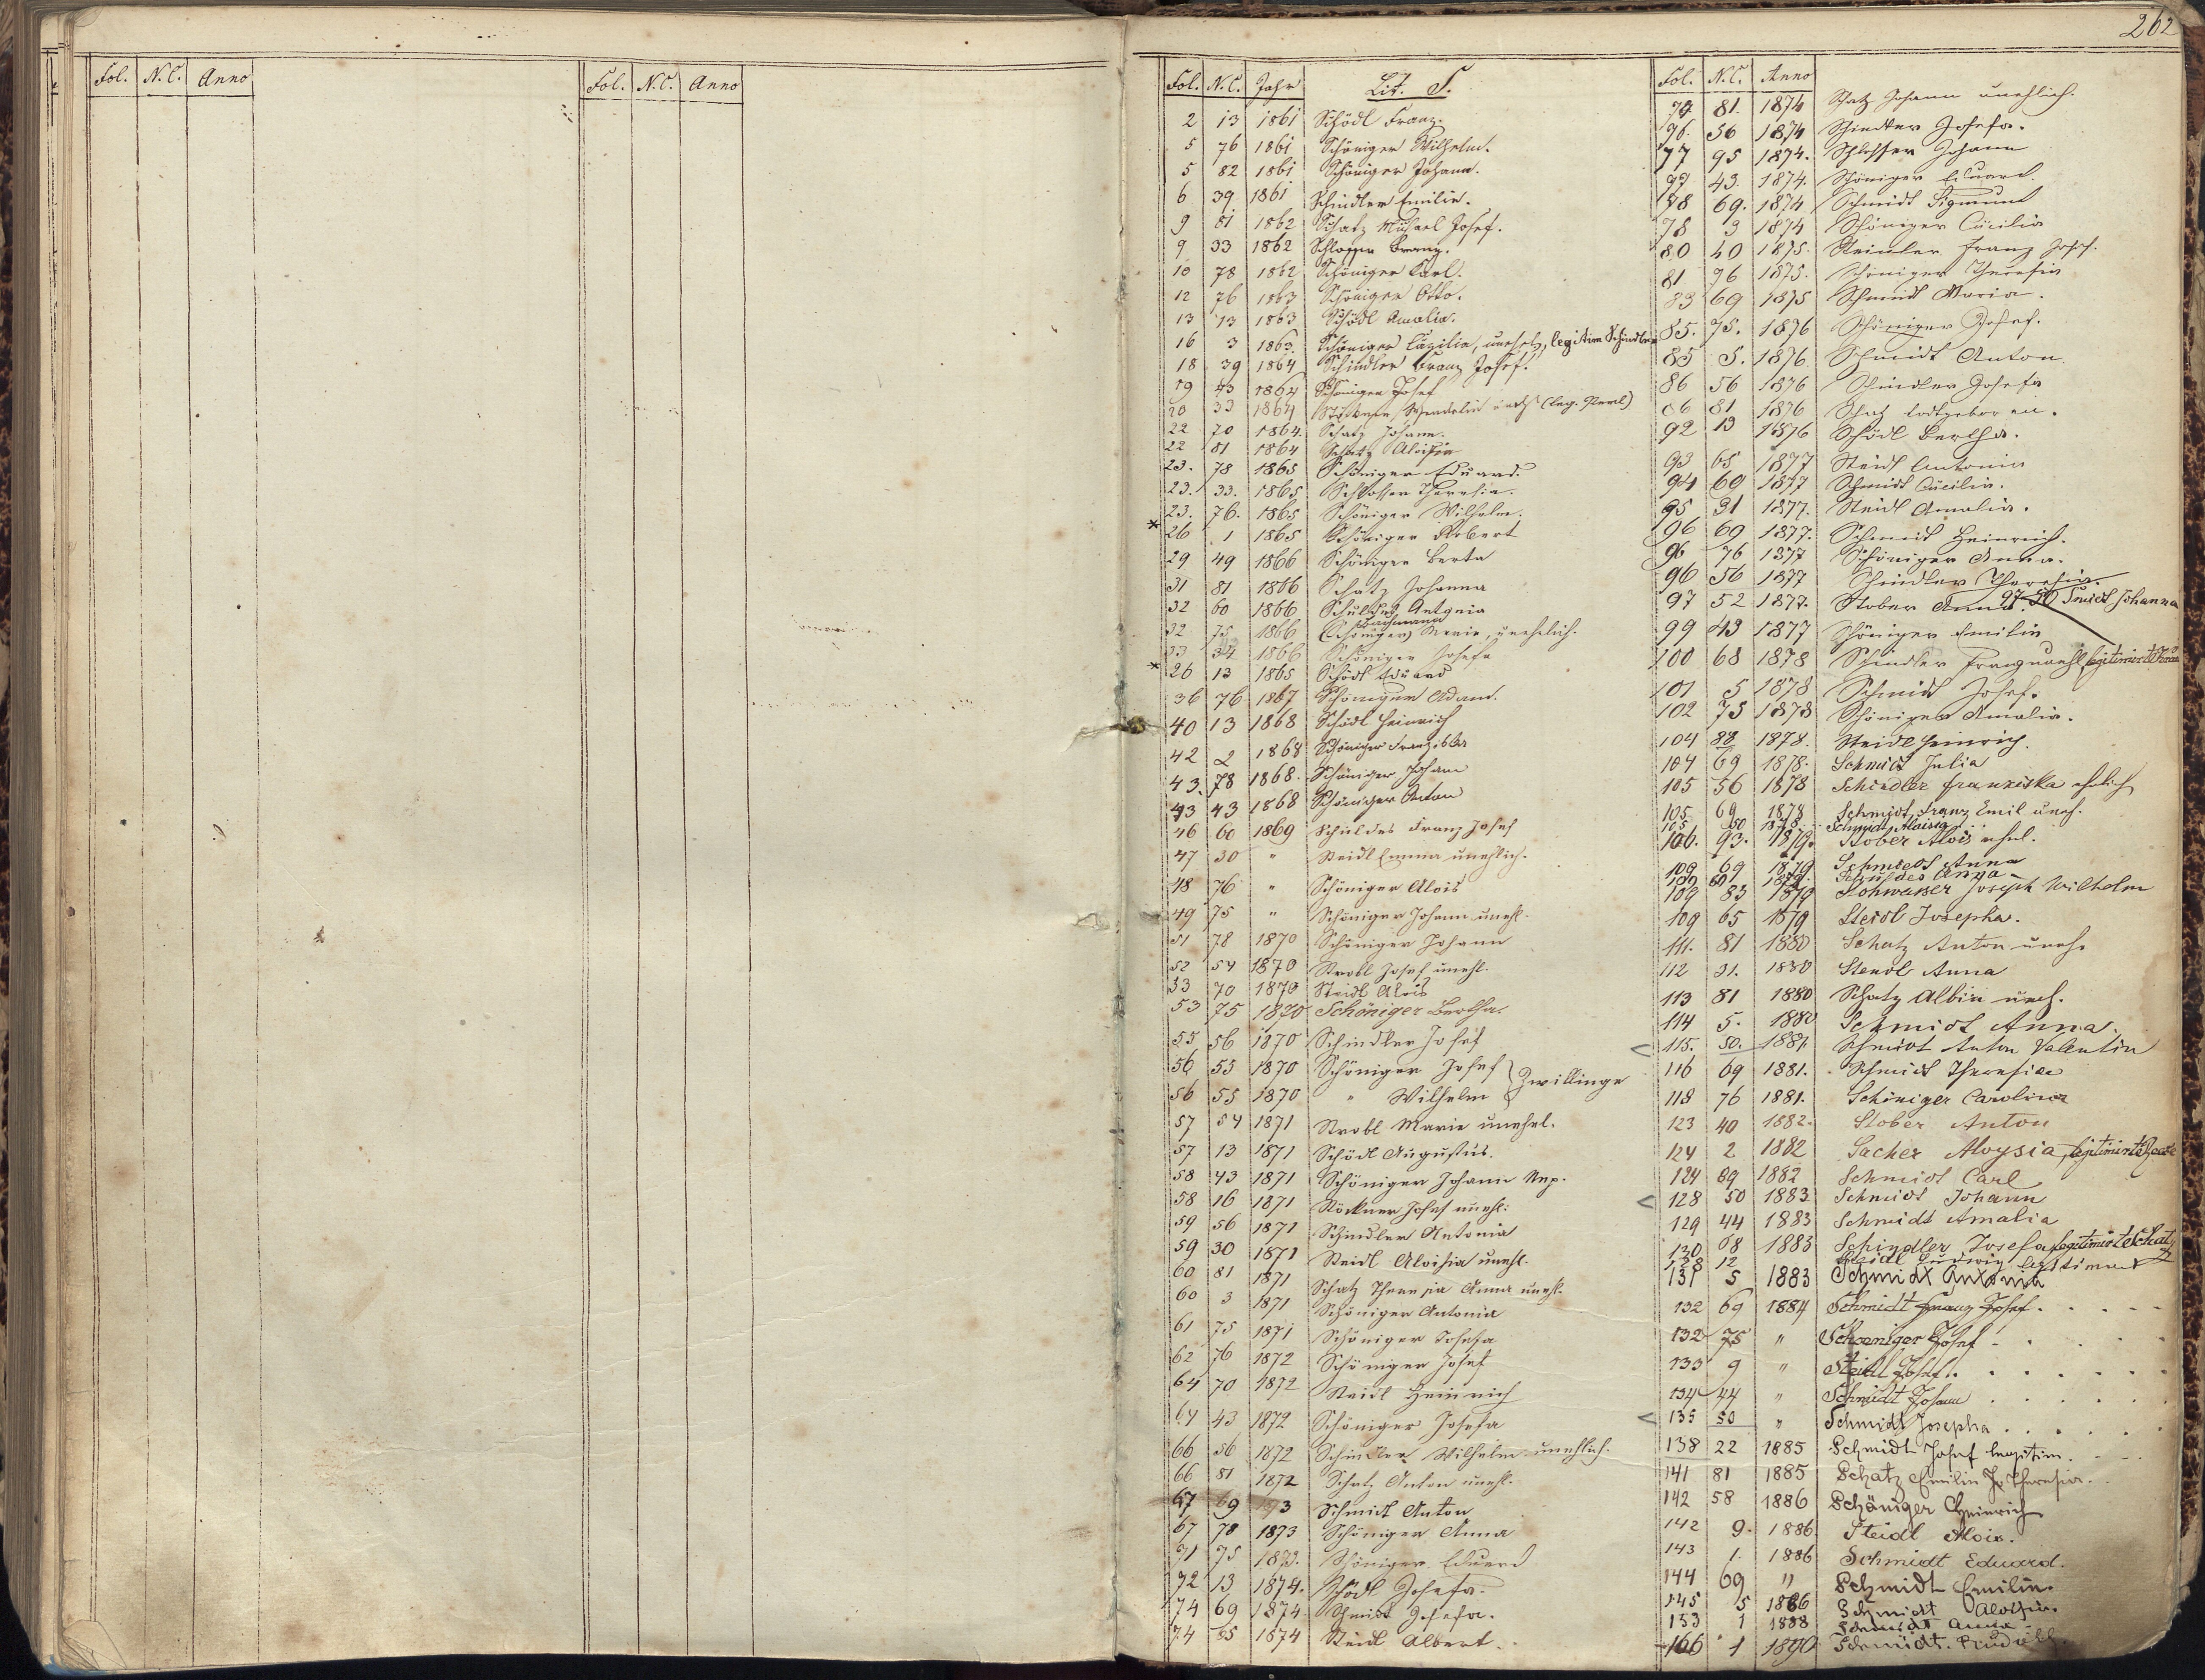 262
Fol. N.C. Anno
Fol. N.C. Anno
Fol. N.C. Jahr Lit. S.
2 13 1861 Schödl Franz.
5 76 1861 Schöniger Wilhelm.
5 82 1861 Schöniger Johann.
6 39 1861 Schindler Emilie.
9 81 1862 Schatz Michael Josef.
9 33 1862 Schlosser Franz.
10 78 1862 Schöniger Carl.
12 76 1863 Schöniger Otto.
13 13 1863 Schödl Amalia.
16 3 1863 Schöniger Cäzilia, unehel, legitim Schindler
18 39 1864 Schindler Franz Josef.
19 43 1864 Schöniger Josef
20 33 1864 Wendelin (leg.
22 70 1864. Schatz Johann.
22 81 1864 Schatz Aloisia
23. 78 1865 Schöniger Eduard.
23. 33. 1865 Schlosser Theresia.
23. 76. 1865 Schöniger Wilhelm.
* 26 1 1865 Schöniger Robert
29 49 1866 Schöniger Berta
31 81 1866 Schatz Johanna
32 60 1866 Schuldes Antonia
Bachmann
32 75 1866 (Schöniger) Marie, unehelich.
33 34 1866 Schöniger Josefa
* 26 13 1865 Schödl Eduard
36 76 1867 Schöniger Adam.
40 13 1868 Schödl Heinrich
42 2 1868 Schöniger Franziska
43. 78 1868. Schöniger Johann
43 43 1868 Schöniger Anton
46 60 1869 Schuldes Franz Josef
47 30 " Steidl Emma unehlich.
48 76 " Schöniger Alois
49 75 " Schöniger Johann unehl.
51 78 1870 Schöniger Johann
52 54 1870 Strobl Josef unehl.
53 70 1870 Steidl Alois
53 75 1870 Schöniger Bertha.
55 56 1870 Schindler Josef
56 55 1870 Schöniger Josef } Zwillinge
56 55 1870 " Wilhelm
57 54 1871 Strobl Marie unehel.
57 13 1871 Schödl Augustus.
58 43 1871 Schöniger Johann Nep.
58 16 1871 Stöckner Josef unehl:
59 56 1871 Schindler Antonia
59 30 1871 Steidl Aloisia unehl.
60 81 1871 Schatz Theresia Anna unehl.
60 3 1871 Schöniger Antonia
61 75 1871 Schöniger Josefa
62 76 1872 Schöniger Josef
64 70 1872 Steidl Heinrich
64 43 1872 Schöniger Josefa
66 56 1872 Schindler Wilhelm unehlich.
66 81 1872 Schatz Anton unehl.
67 69 1873 Schmidt Anton
67 78 1873 Schöniger Anna
71 75 1873. Schöniger Eduard
72 13 1874. Schödl Josefa.
74 69 1874 Schmidt Josefa.
74 85 1874 Steidl Albert.
Fol. N.C. Anno
74 81. 1874 Schatz Johann unehlich.
76. 56 1874 Schindler Josefa.
77 95 1874. Schlosser Johann
77 43. 1874. Schöniger Eduard.
78 69. 1874 Schmidt Sigmund
78 3 1874 Schöniger Cäcilia
80 40 1875. Steidler Franz Josef.
81 76 1875. Schöniger Theresia
83 69 1875 Schmidt Maria.
85. 75. 1876 Schöniger Josef.
85 5. 1876. Schmidt Anton.
86 56 1876 Schindler Josefa
86 81 1876 Schatz todtgeboren.
92 13 1876 Schödl Bertha.
93 65 1877 Steidl Antonia
94 60 1877 Schmidt Cäcilia.
95 31 1877. Steidl Amalia.
96 69 1877. Schmidt Heinrich.
96 76 1877 Schöniger Anna.
96 56 1877 Schindler Theresia.
97 52 1877. Stober Anna. 97. 50 Smidt Johanna
99 43 1877 Schöniger Emilie
100 68 1878 Schindler Franz unehl legitimirt
101 5 1878 Schmidt Josef.
102 75 1878 Schöniger Amalia.
104 88 1878. Steidl Heinrich.
104 69 1878. Schmidt Julia
105 56 1878 Schindler Franziska ehelich
105. 69 1878 Schmidt, Franz Emil uneh.
105 50 1878. Schmidt Aloisia
106. 93. 1879. Stober Alois ehel.
109 69 1879 Schmiedt Anna
109 60 1879. Schuldes Anna
109 83 1879 Sohwasser Joseph Wilhelm
109 65 1879 Steidl Josepha.
111. 81 1880 Schatz Anton uneh.
112 31. 1880 Steidl Anna
113 81 1880 Schatz Albin uneh.
114 5. 1880 Schmidt Anna.
< 115. 50. 1881. Schmidt Anton Valentin
116 69 1881. Schmidt Theresia
118 76 1881. Schöniger Carolina
123 40 1882. Stober Anton
124 2 1882 Sacher Aloysia, legitimirt
124 69 1882 Schmidt Carl
< 128 50 1883 Schmidt Johann
129 44 1883 Schmidt Amalia
130 68 1883 Schindler Josefa legitimirt Schatz
128 12 Steidl Ludwig legitimirt
131 5 1883 Schmidt Antonia
132 69 1884 Schmidt Franz Josef.
132 75 " Schoeniger Josef
133 9 " Steidl Josef.
134 44 " Schmidt Johann
< 135 50 " Schmidt Josepha
138 22 1885 Schmidt Josef legitim.
141 81 1885 Schatz Emilin Theresia.
142 58 1886 Schöniger Heinrich
142 9. 1886 Steidl Alois.
143 1. 1886 Schmidt Eduard.
144 69 " Schmidt Emilin.
145 5 1886 Schmidt Aloisia.
153 1 1888 Schmidt Anna
166 1 1890 Schmidt Rudolf.